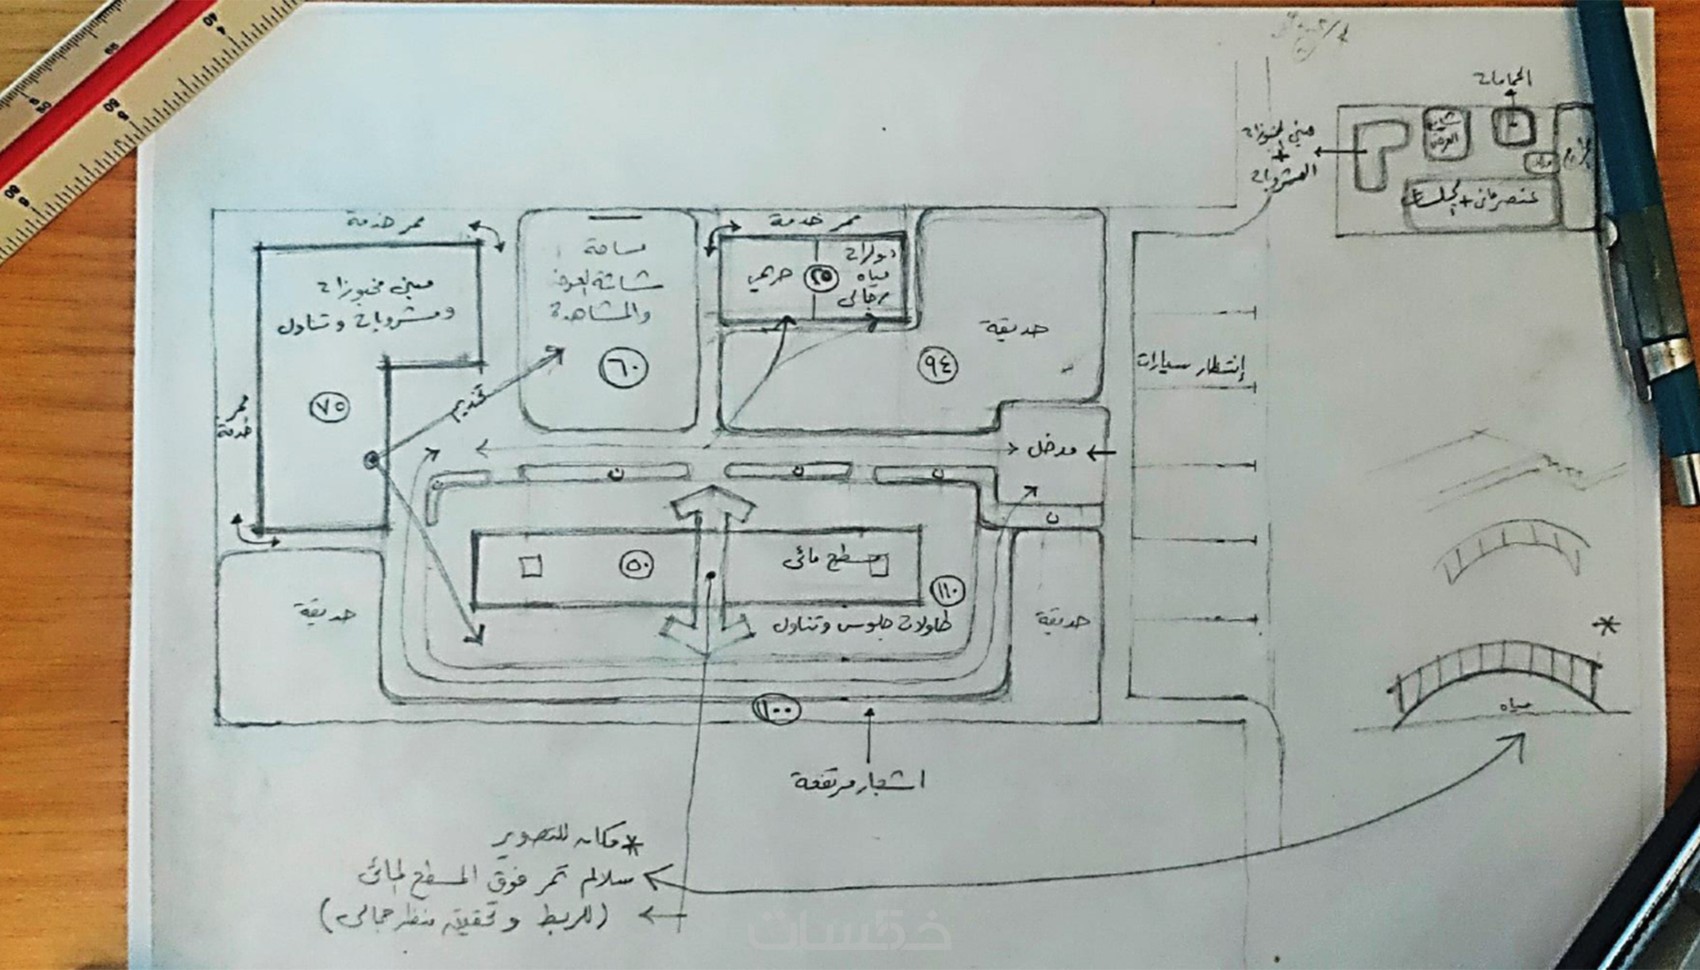 الحمامات
مبنى المخبوزات
+
المشروبات
شاشة
العرض
عنصر مائى + الجلسات
ممر خدمة
ممر خدمة
مبنى مخبوزات
ومشروبات وتناول
٧٥
ممر
خدمة
مساحة
شاشة العرض
والمشاهدة
٦٠
تخديم
حريمى
٢٥
دورات
مياه
رجالى
حديقة
٩٤
إنتظار سيارات
مدخل
ن
ن
ن
ن
مسطح مائى
٥٠
١١٠
طاولات جلوس وتناول
حديقة
حديقة
١٠٠
اشجار مرتفعة
مياه
*
* مكان للتصوير
سلالم تمر فوق المسطح المائى
(للربط وتحقيق منظر جمالى)
خمسات